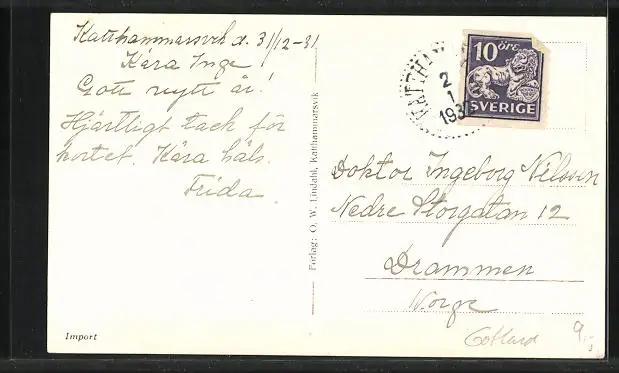 Katthammarsvik d. 31/12-31
Kära Inge
Gott nytt år!
Hjärtligt tack för
kortet. Kära häls.
Frida.
Import
Förlag: O. W. Lindahl, Katthammarsvik
KATTHA
2
1
193
10 öre
SVERIGE
Doktor Ingeborg Nilssen
Nedre Storgatan 12
Drammen
Norge
Gotland
9,-